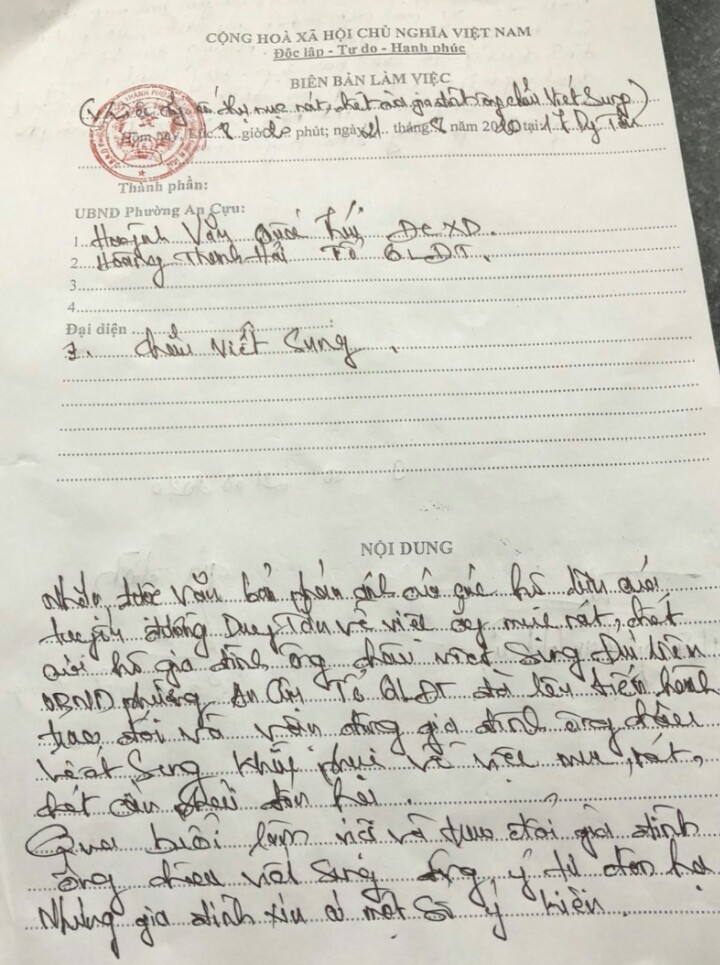 CỘNG HOÀ XÃ HỘI CHỦ NGHĨA VIỆT NAM
Độc lập - Tự do - Hạnh phúc
BIÊN BẢN LÀM VIỆC
(Về cây mục nát, chết của gia đình ông Châu Viết Sung)
Hôm nay, Lúc 8 giờ phút; ngày tháng 8 năm tại Duy Tân
Thành phần:
UBND Phường An Cựu:
1. Huỳnh Văn Quốc ĐCXD.
2. Hoàng Thanh Hải Tổ QLĐT.
3.
4.
Đại diện
1. Châu Viết Sung.
NỘI DUNG
Nhận được văn bản phản ánh của các hộ dân
đường Duy Tân về việc cây mục nát, chết
của hộ gia đình ông Châu Viết Sung Đại diện
UBND phường An Cựu Tổ QLĐT đã tiến hành
trao đổi và vận động gia đình ông Châu
Viết Sung khắc phục về việc mục nát,
chết cần phải đốn hạ.
Qua buổi làm việc và trao đổi gia đình
ông Châu Viết Sung đồng ý tự đốn hạ
Nhưng gia đình xin có một số ý kiến.